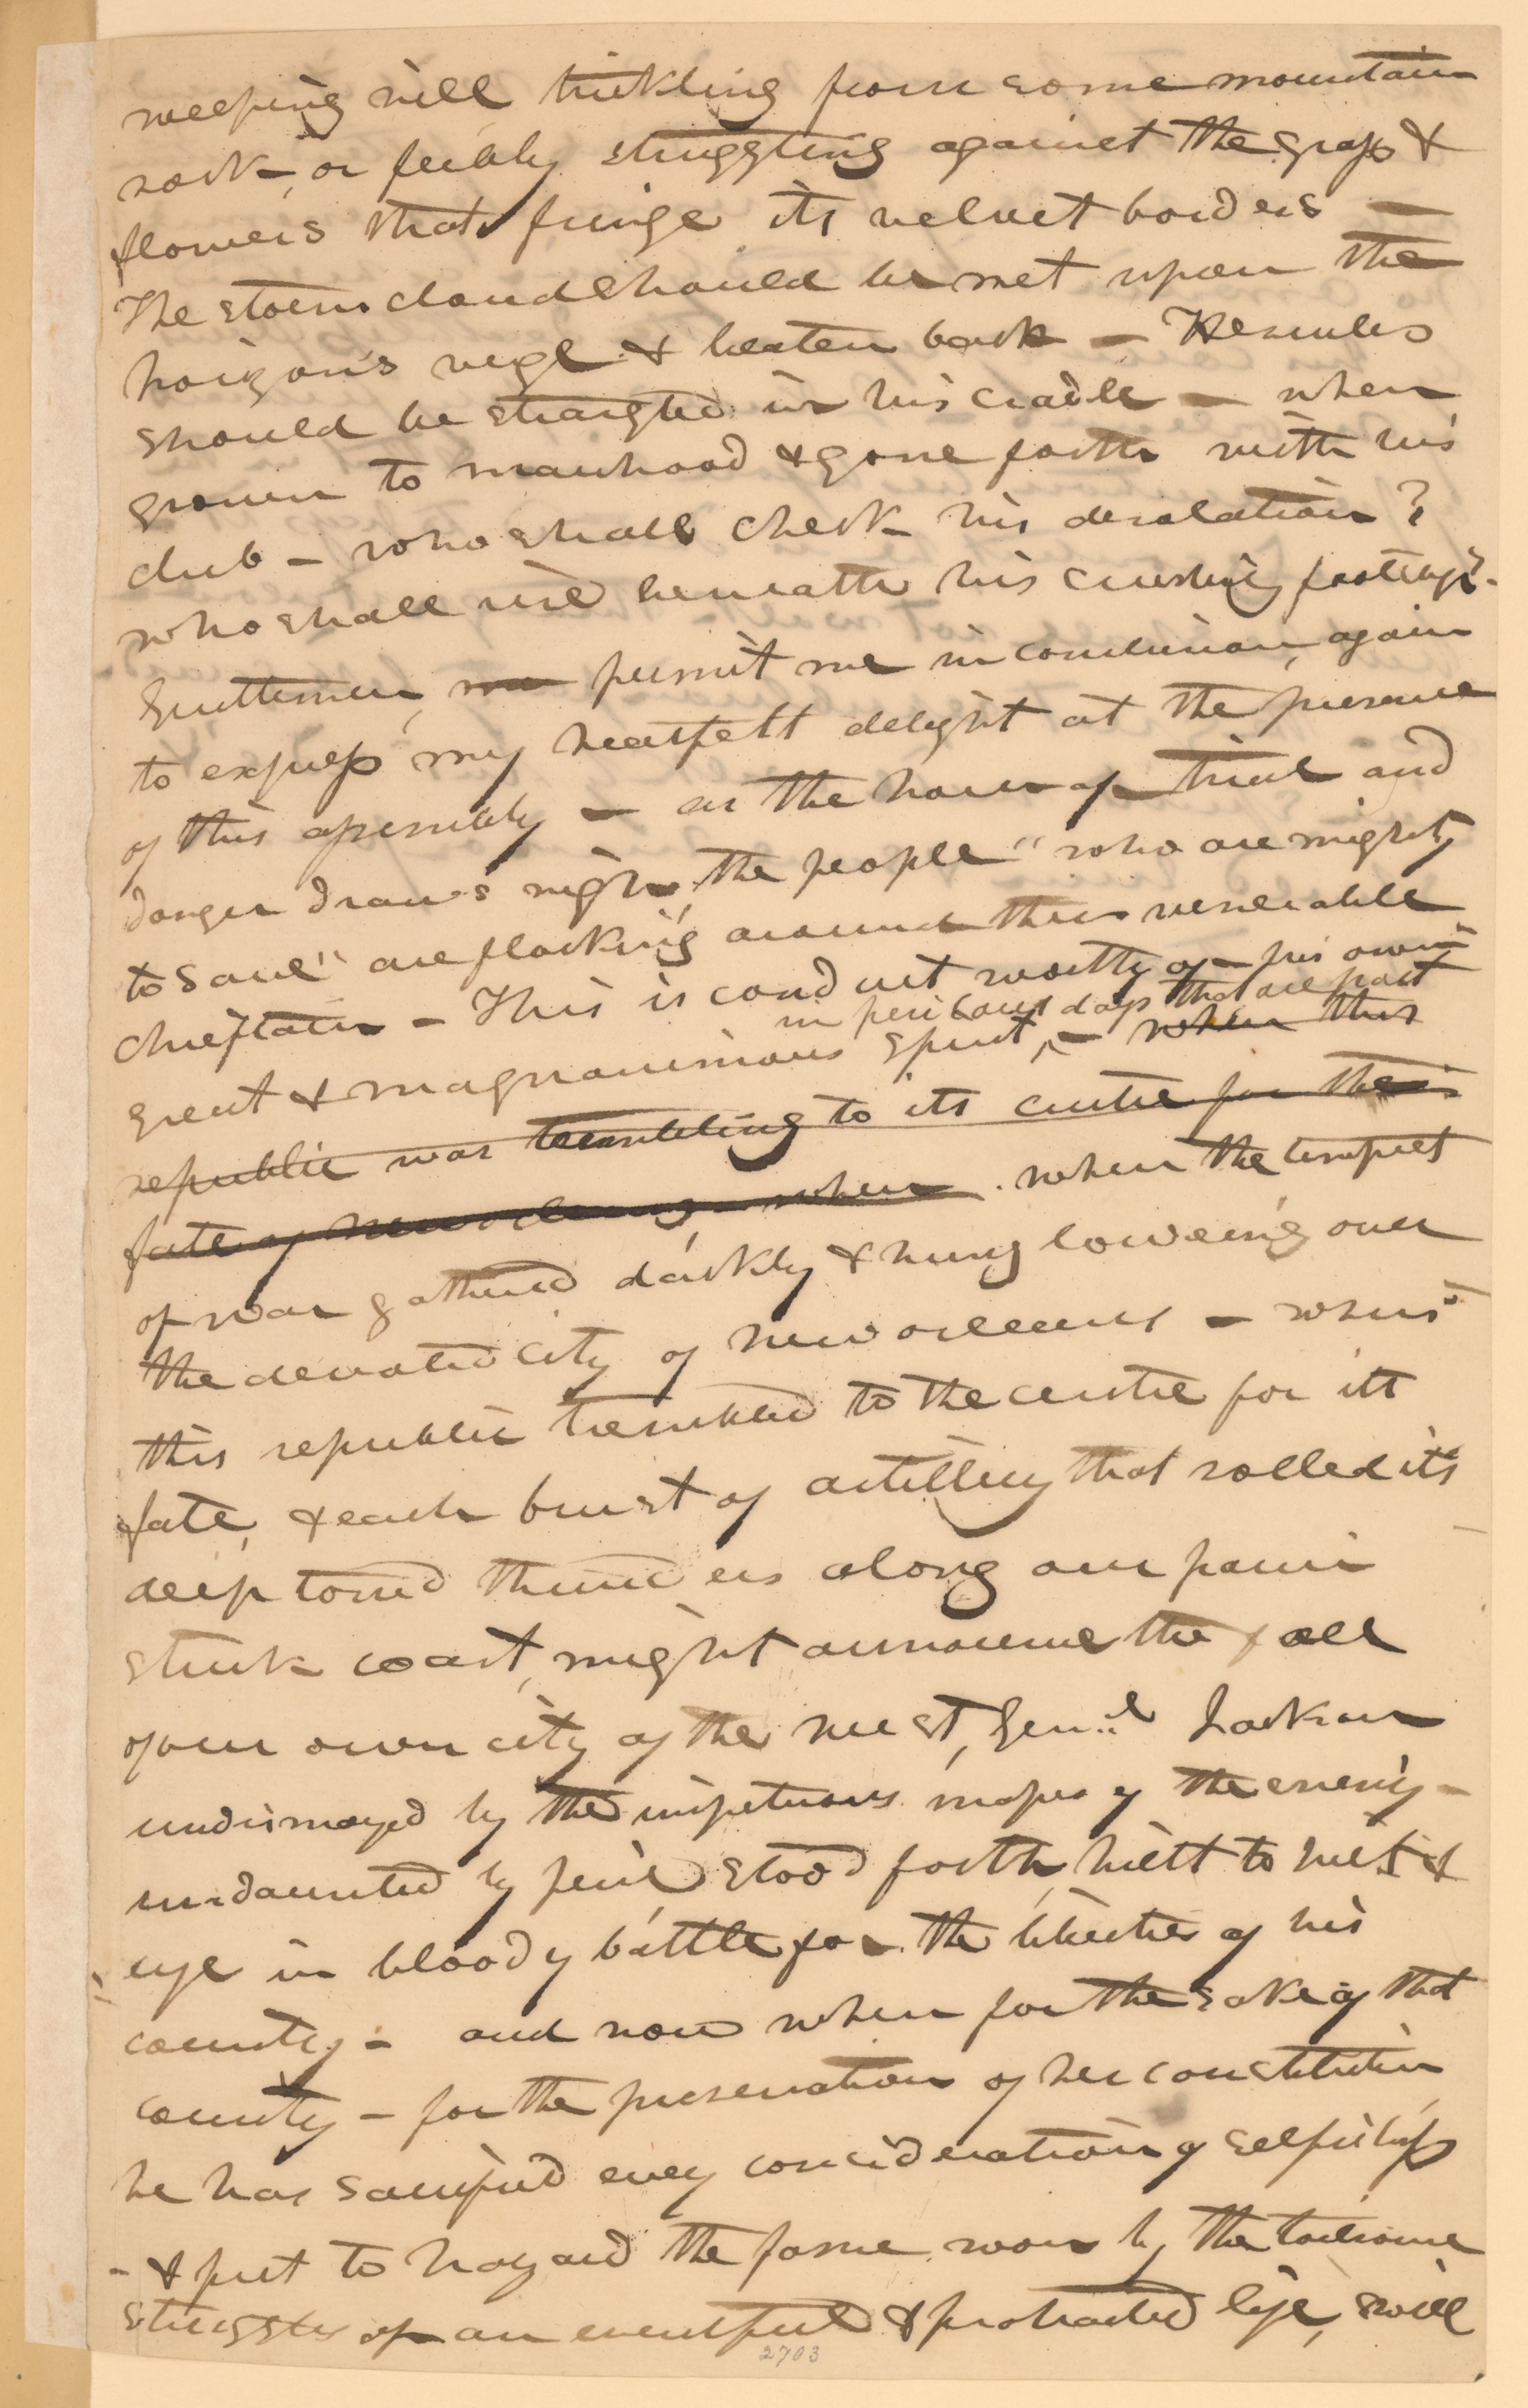 weeping rill trickling from some mountain
rock, or feebly struggling against the grass &
flowers that fringe its velvet borders —
The storm cloud should be met upon the
horizon's verge & beaten back — Hercules
should be strangled in his cradle — when
grown to manhood & gone forth with his
club — who shall check his desolation?
who shall rise beneath his crushing footsteps?
Gentlemen, me permit me in conclusion, again
to express my heartfelt delight at the presence
of this assembly — as the hour of trial and
danger draws nigh, the people "who are mighty
to save" are flocking around their venerable
chieftain — This is conduct worthy of his own
in perilous days that are past
great & magnanimous spirit, — when this
republic was trembling to its centre for the
fate of new orleans — when when the tempest
of war gathered darkly & hung lowering over
the devoted city of new orleans — whilst
this republic trembled to the centre for its
fate, & each burst of artillery that rolled its
deep toned thunders along our panic
struck coast, might announce the fall
of our own city of the west, Genl Jackson
undismayed by the impetuous masses of the enemy —
undaunted by peril stood forth, hilt to hilt &
eye in bloody battle for the liberties of his
country — and now when for the sake of that
country — for the preservation of her constitution
he has sacrificed every consideration of selfishness
— & put to hazard the fame won by the toilsome
struggles of an eventful & protracted life, will
2703